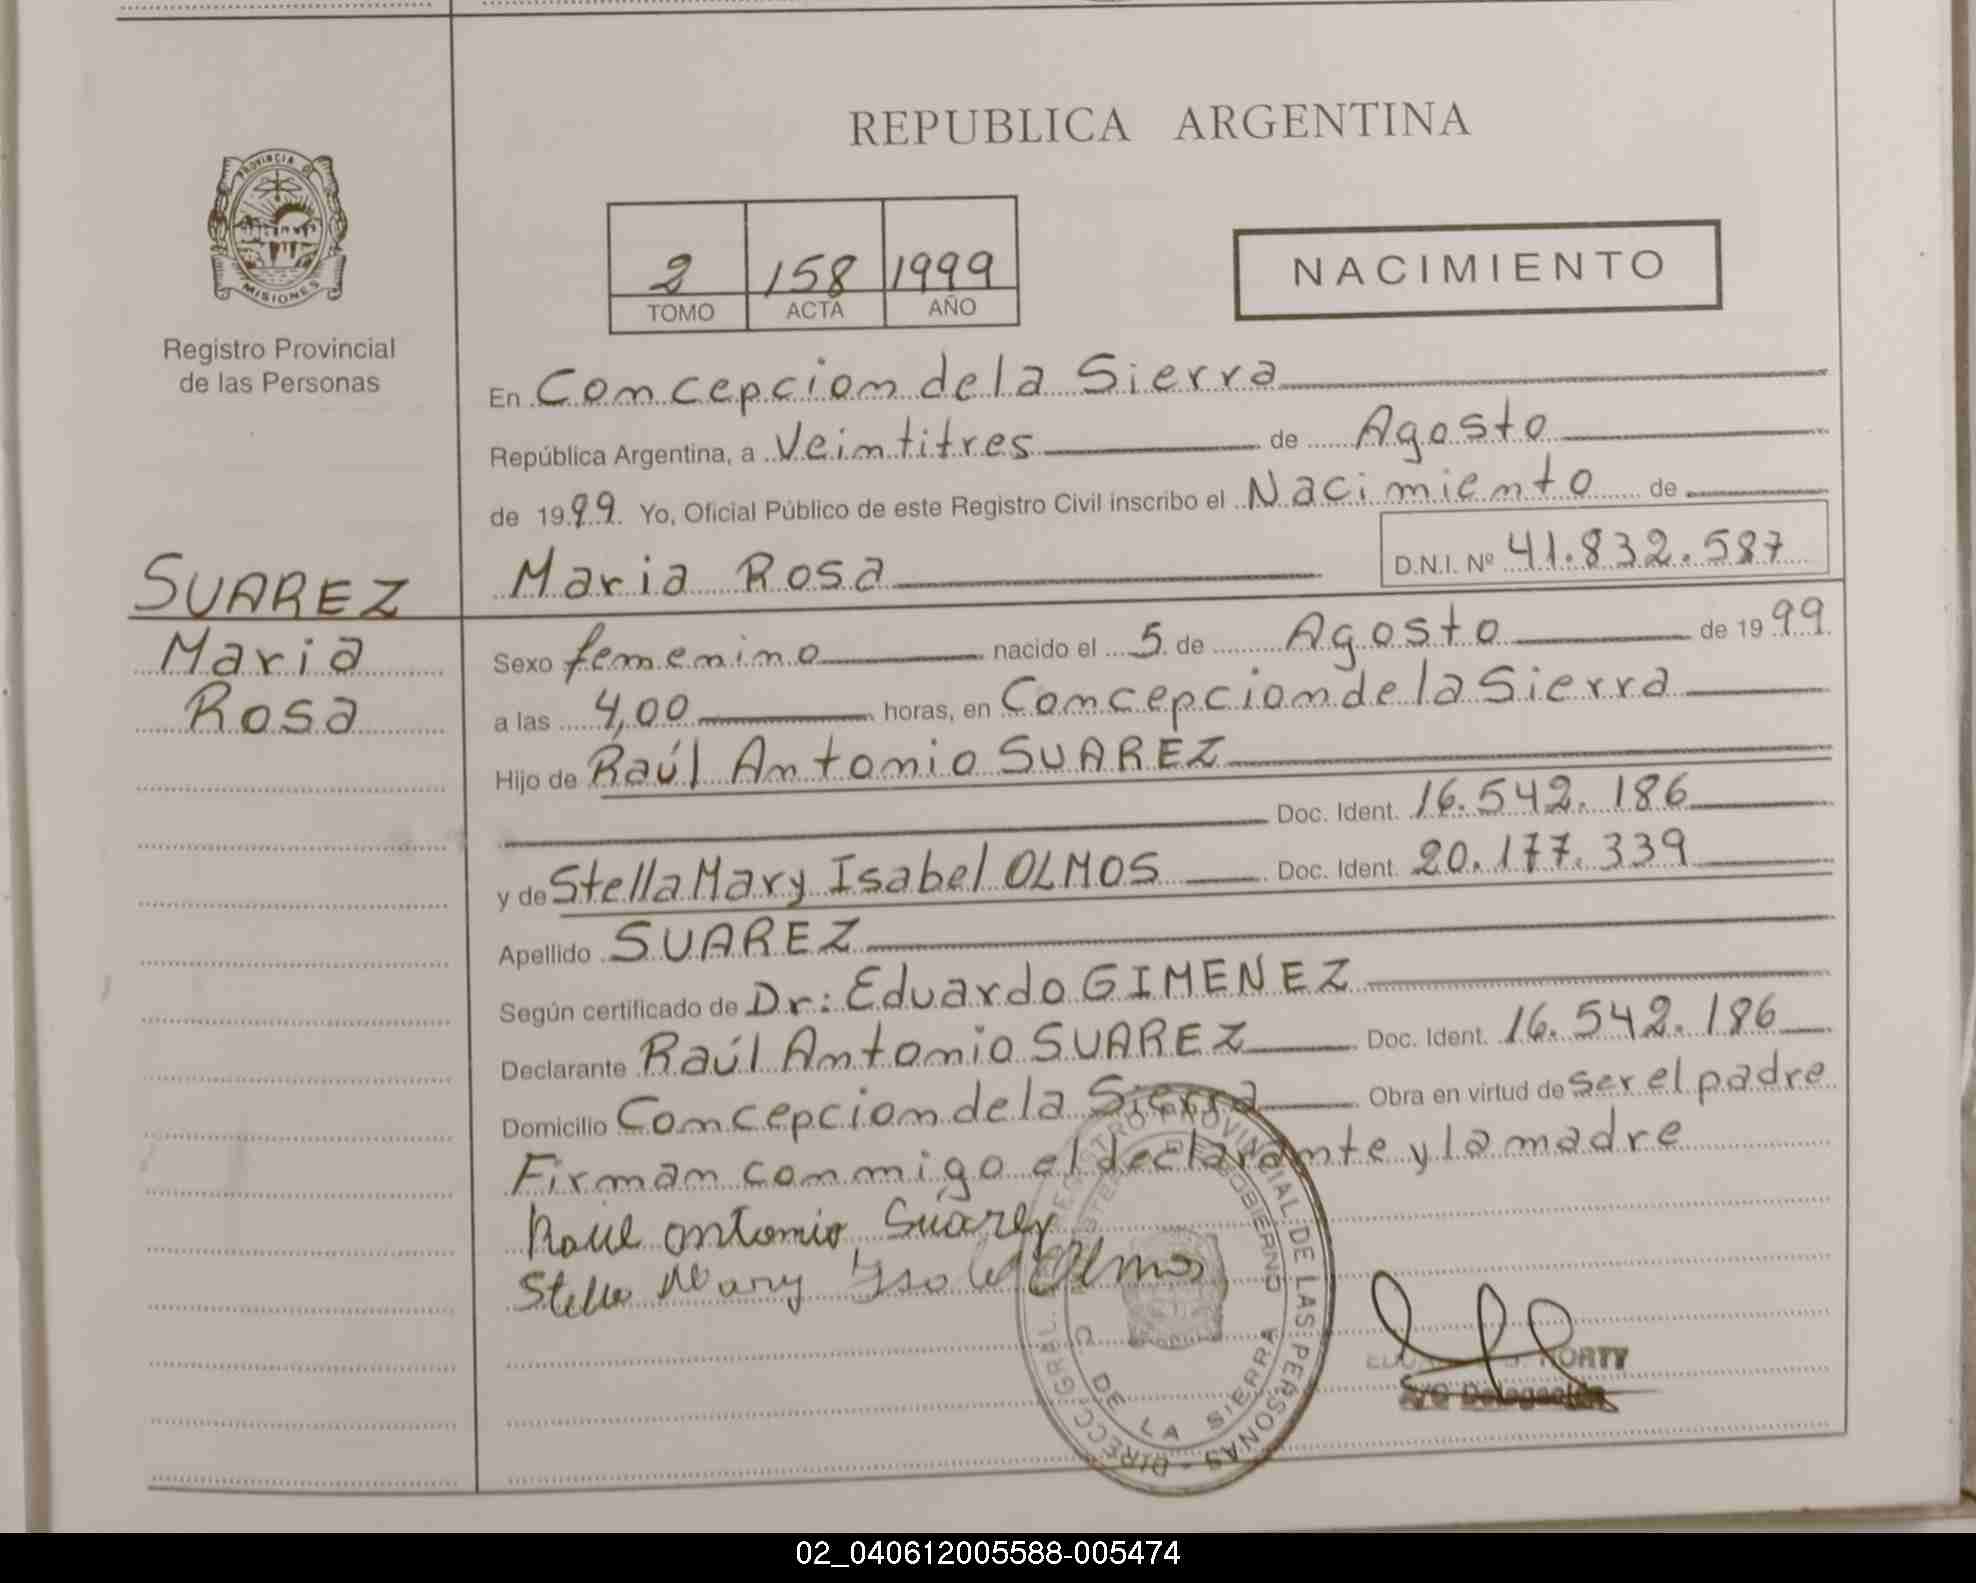 REPUBLICA ARGENTINA
PROVINCIA DE
MISIONES
Registro Provincial
de las Personas
2 158 1999
TOMO ACTA AÑO
NACIMIENTO
En Concepcion de la Sierra
República Argentina, a Veintitres de Agosto
de 1999. Yo, Oficial Público de este Registro Civil inscribo el Nacimiento de
Maria Rosa D.N.I. Nº 41.832.587
SUAREZ
Maria
Rosa
Sexo femenino nacido el 5 de Agosto de 1999
a las 4,00 horas, en Concepcion de la Sierra
Hijo de Raúl Antonio SUAREZ
Doc. Ident. 16.542.186
y de Stella Mary Isabel OLMOS Doc. Ident. 20.177.339
Apellido SUAREZ
Según certificado de Dr: Eduardo GIMENEZ
Declarante Raúl Antonio SUAREZ Doc. Ident. 16.542.186
Domicilio Concepcion de la Sierra Obra en virtud de ser el padre
Firman conmigo el declarante y la madre
Raúl Antonio Suárez
Stella Mary Olmos
DIRECC. GRAL. REGISTRO PROVINCIAL DE LAS PERSONAS
GOBIERNO
DE LA SIERRA
A/C Delegación
02_040612005588-005474